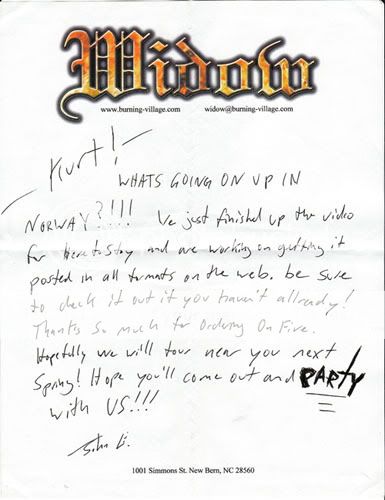 Widow
www.burning-village.com widow@burning-village.com
Kurt!
WHATS GOING ON UP IN
NORWAY?!!! We just finished up the video
for Here to Stay and are working on getting it
posted in all formats on the web. be sure
to check it out if you haven't allready!
Thanks so much for Ordering On Fire.
Hopefully we will tour near you next
Spring! Hope you'll come out and PARTY
with US!!!
John E.
1001 Simmons St. New Bern, NC 28560